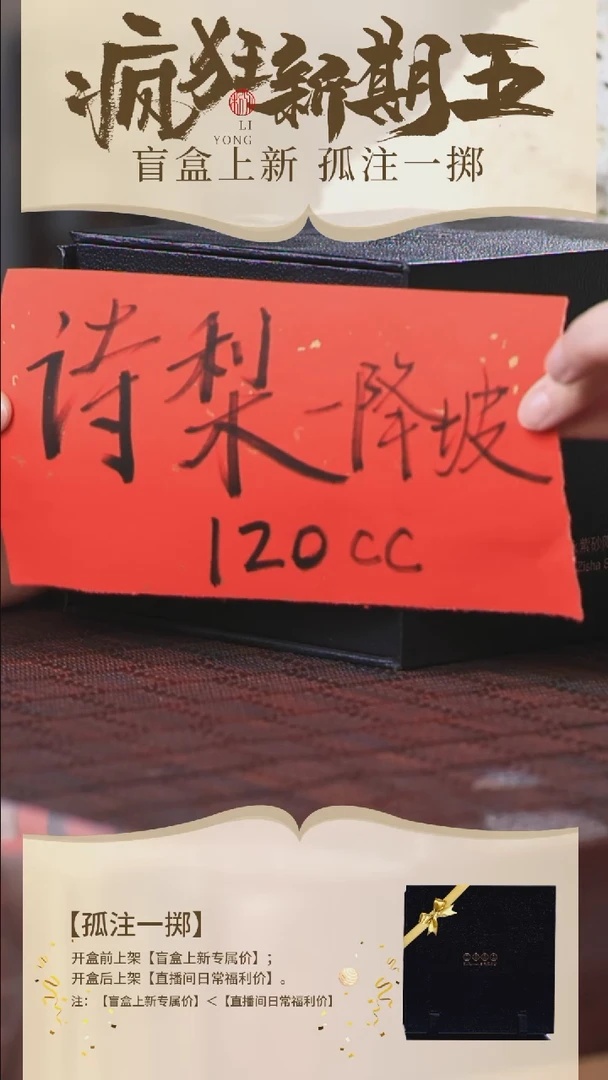 疯狂新期五
LI
YONG
盲盒上新 孤注一掷
诗梨-降坡
120cc
紫砂
Zisha
【孤注一掷】
开盒前上架【盲盒上新专属价】；
开盒后上架【直播间日常福利价】。
注：【盲盒上新专属价】＜【直播间日常福利价】